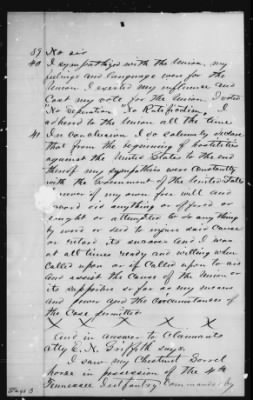 39 No sir
40 I sympathized with the Union, my
feelings and language were for the
Union. I exerted my influence and
cast my vote for the Union. I voted
"No Separation" "No Ratification," I
adhered to the Union all the time
41 In Conclusion I do solemnly declare
that from the beginning of hostilities
against the United States to the end
thereof my sympathies were constantly
with the Government of the United States
I never of my own free will and
accord did anything or offered or
sought or attempted to do anything
by word or deed to injure said Cause
or retard its success and I was
at all times ready and willing when
Called upon or if Called upon to aid
and assist the Cause of the Union or
its supporters so far as my means
and power and the circumstances of
the Case permitted
X X X X X
And in answer to Claimants
Atty E. N. Griffith says
I saw my Chestnut Sorrel
horse in possession of the 4th
Tennessee Infantry Commanded by
Page 3